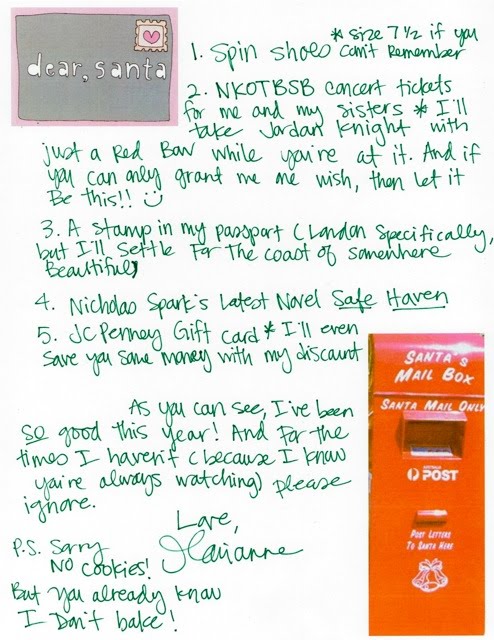 dear, santa
* size 7 1/2 if you
1. Spin Shoes can't remember
2. NKOTBSB concert tickets
for me and my sisters * I'll
take Jordan Knight with
just a Red Bow while you're at it. And if
you can only grant me one wish, then let it
Be this!! :)
3. A stamp in my passport (London specifically,
but I'll settle for the coast of somewhere
Beautiful)
4. Nicholas Spark's Latest Novel Safe Haven
5. JCPenney Gift Card * I'll even
save you some money with my discount
As you can see, I've been
so good this year! And for the
times I haven't (because I know
you're always watching) please
ignore.
Love,
Marianne
P.S. Sorry
NO cookies!
But you already know
I Don't bake!
SANTA'S
MAIL BOX
SANTA MAIL ONLY
AUSTRALIA
POST
POST LETTERS
TO SANTA HERE